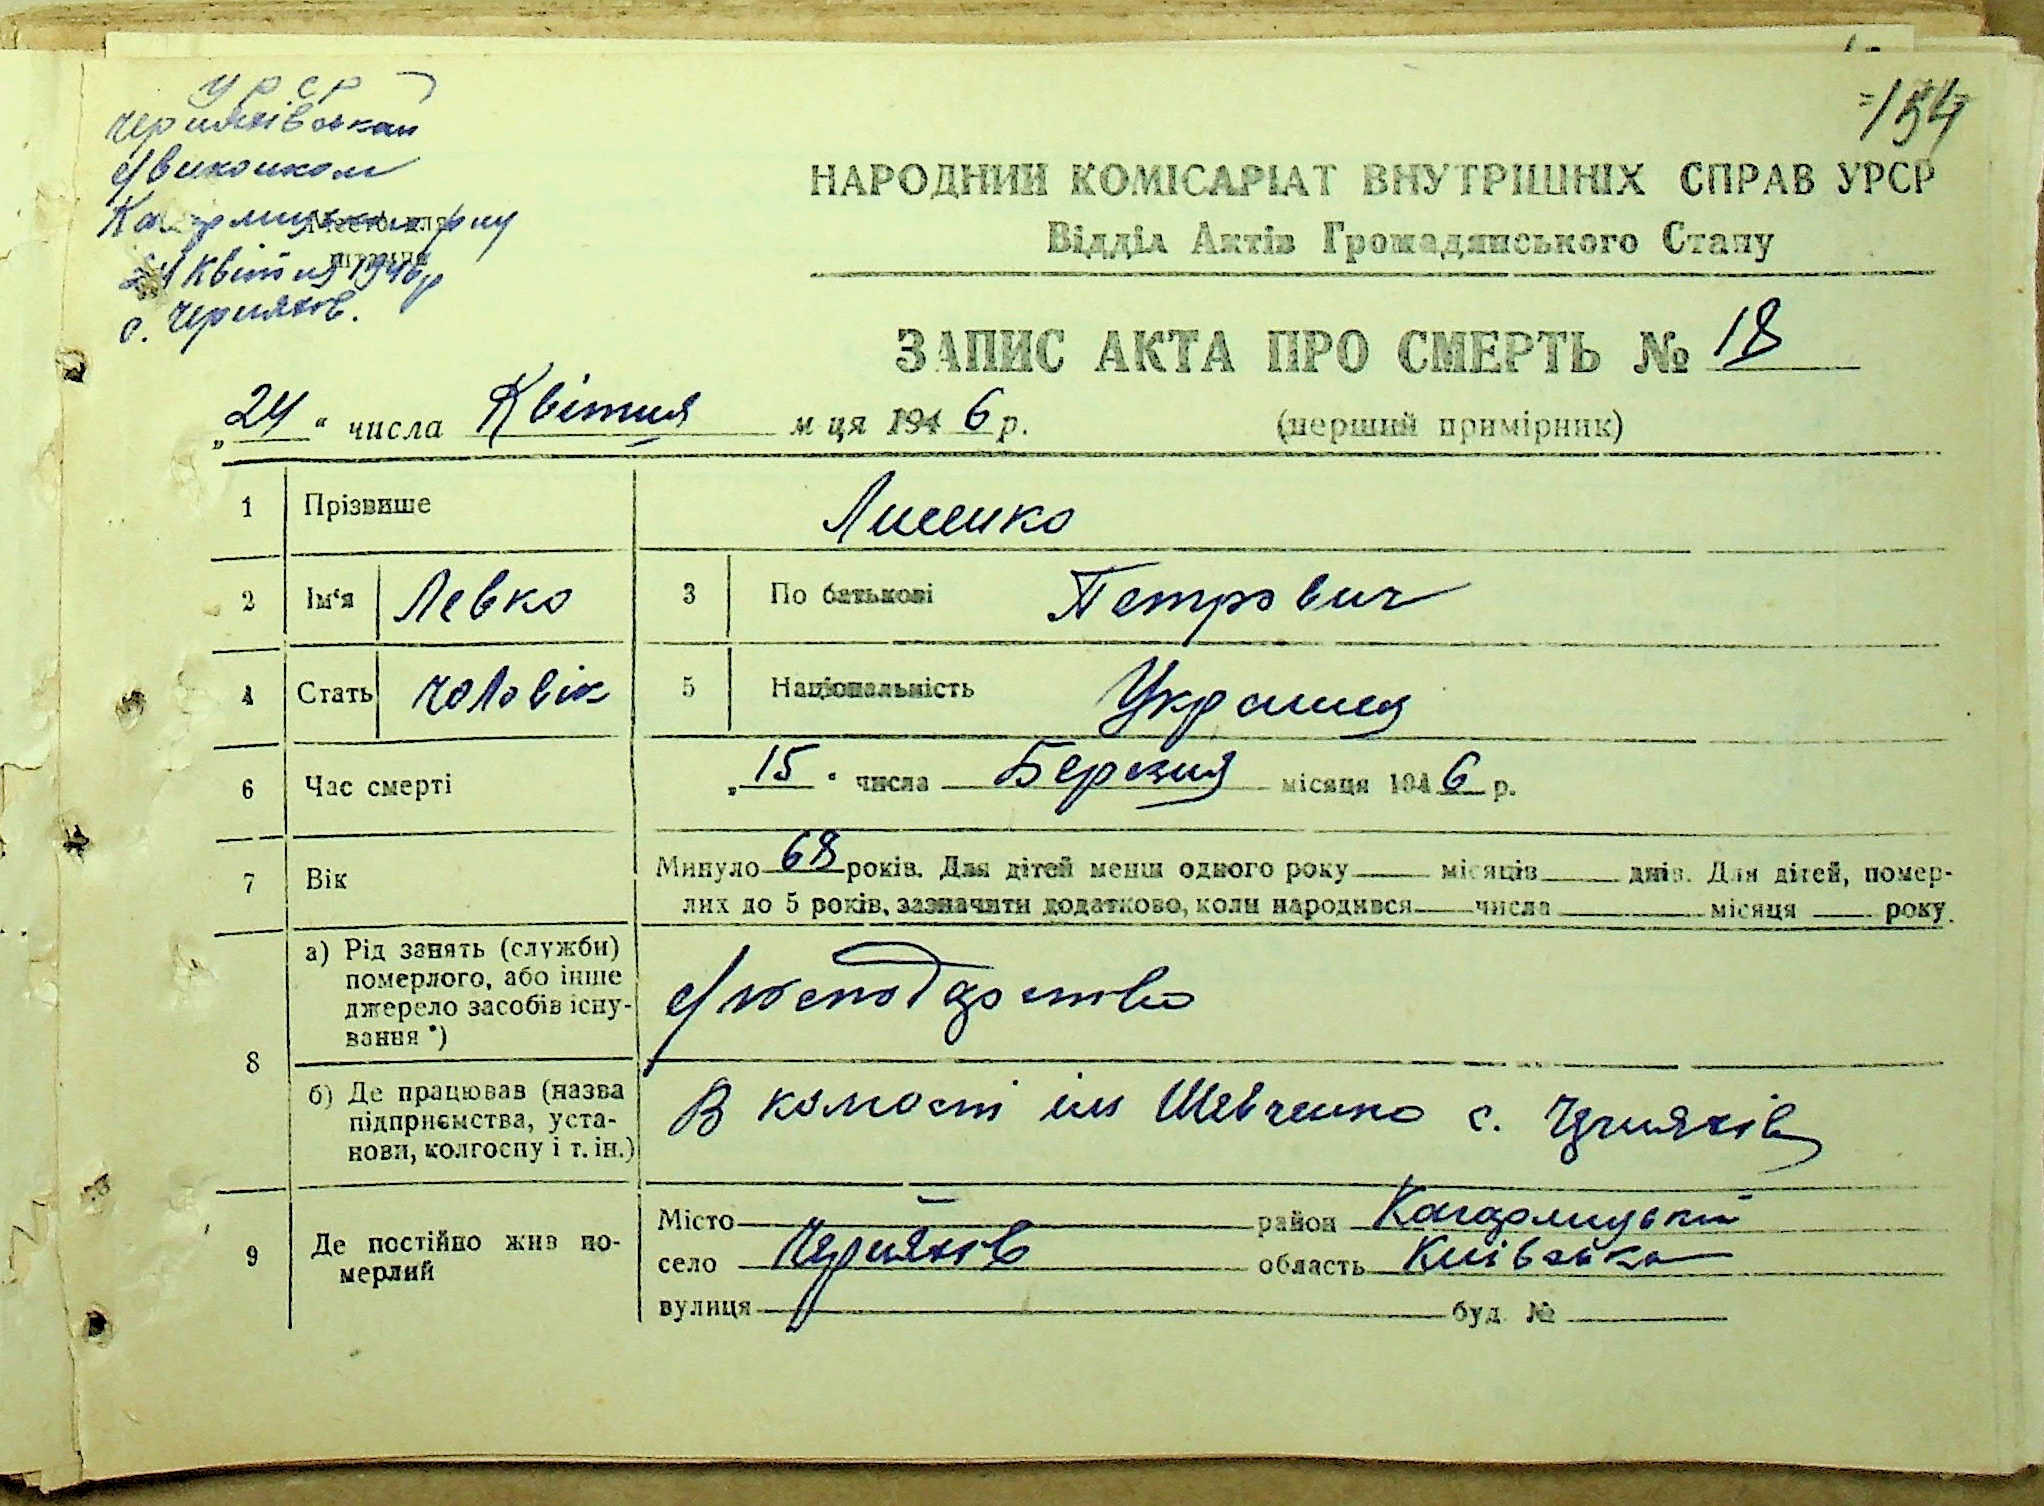 УРСР
Черняхівськ
с/виконком
Кагарлицьк р-ну
Місце для
штампа
24 Квітня 1946 р
с. Черняхів.
154
НАРОДНИЙ КОМІСАРІАТ ВНУТРІШНІХ СПРАВ УРСР
Відділ Актів Громадянського Стану
ЗАПИС АКТА ПРО СМЕРТЬ № 18
„24“ числа Квітня м-ця 1946 р. (перший примірник)
1 Прізвище Лисенко
2 Ім‘я Левко 3 По батькові Петрович
4 Стать чоловік 5 Національність Українец
6 Час смерті „15“ числа Березня місяця 1946 р.
7 Вік Минуло 68 років. Для дітей менш одного року місяців днів. Для дітей, помер-
лих до 5 років, зазначити додатково, коли народився числа місяця року.
8 а) Рід занять (служби) померлого, або інше джерело засобів існу-вання *) с/господарство
б) Де працював (назва підприємства, уста-нови, колгоспу і т. ін.) В колгоспі ім Шевченко с. Черняхів
9 Де постійно жив по-мерлий Місто — район Кагарлицький
село Черняхів область Київська
вулиця буд. №